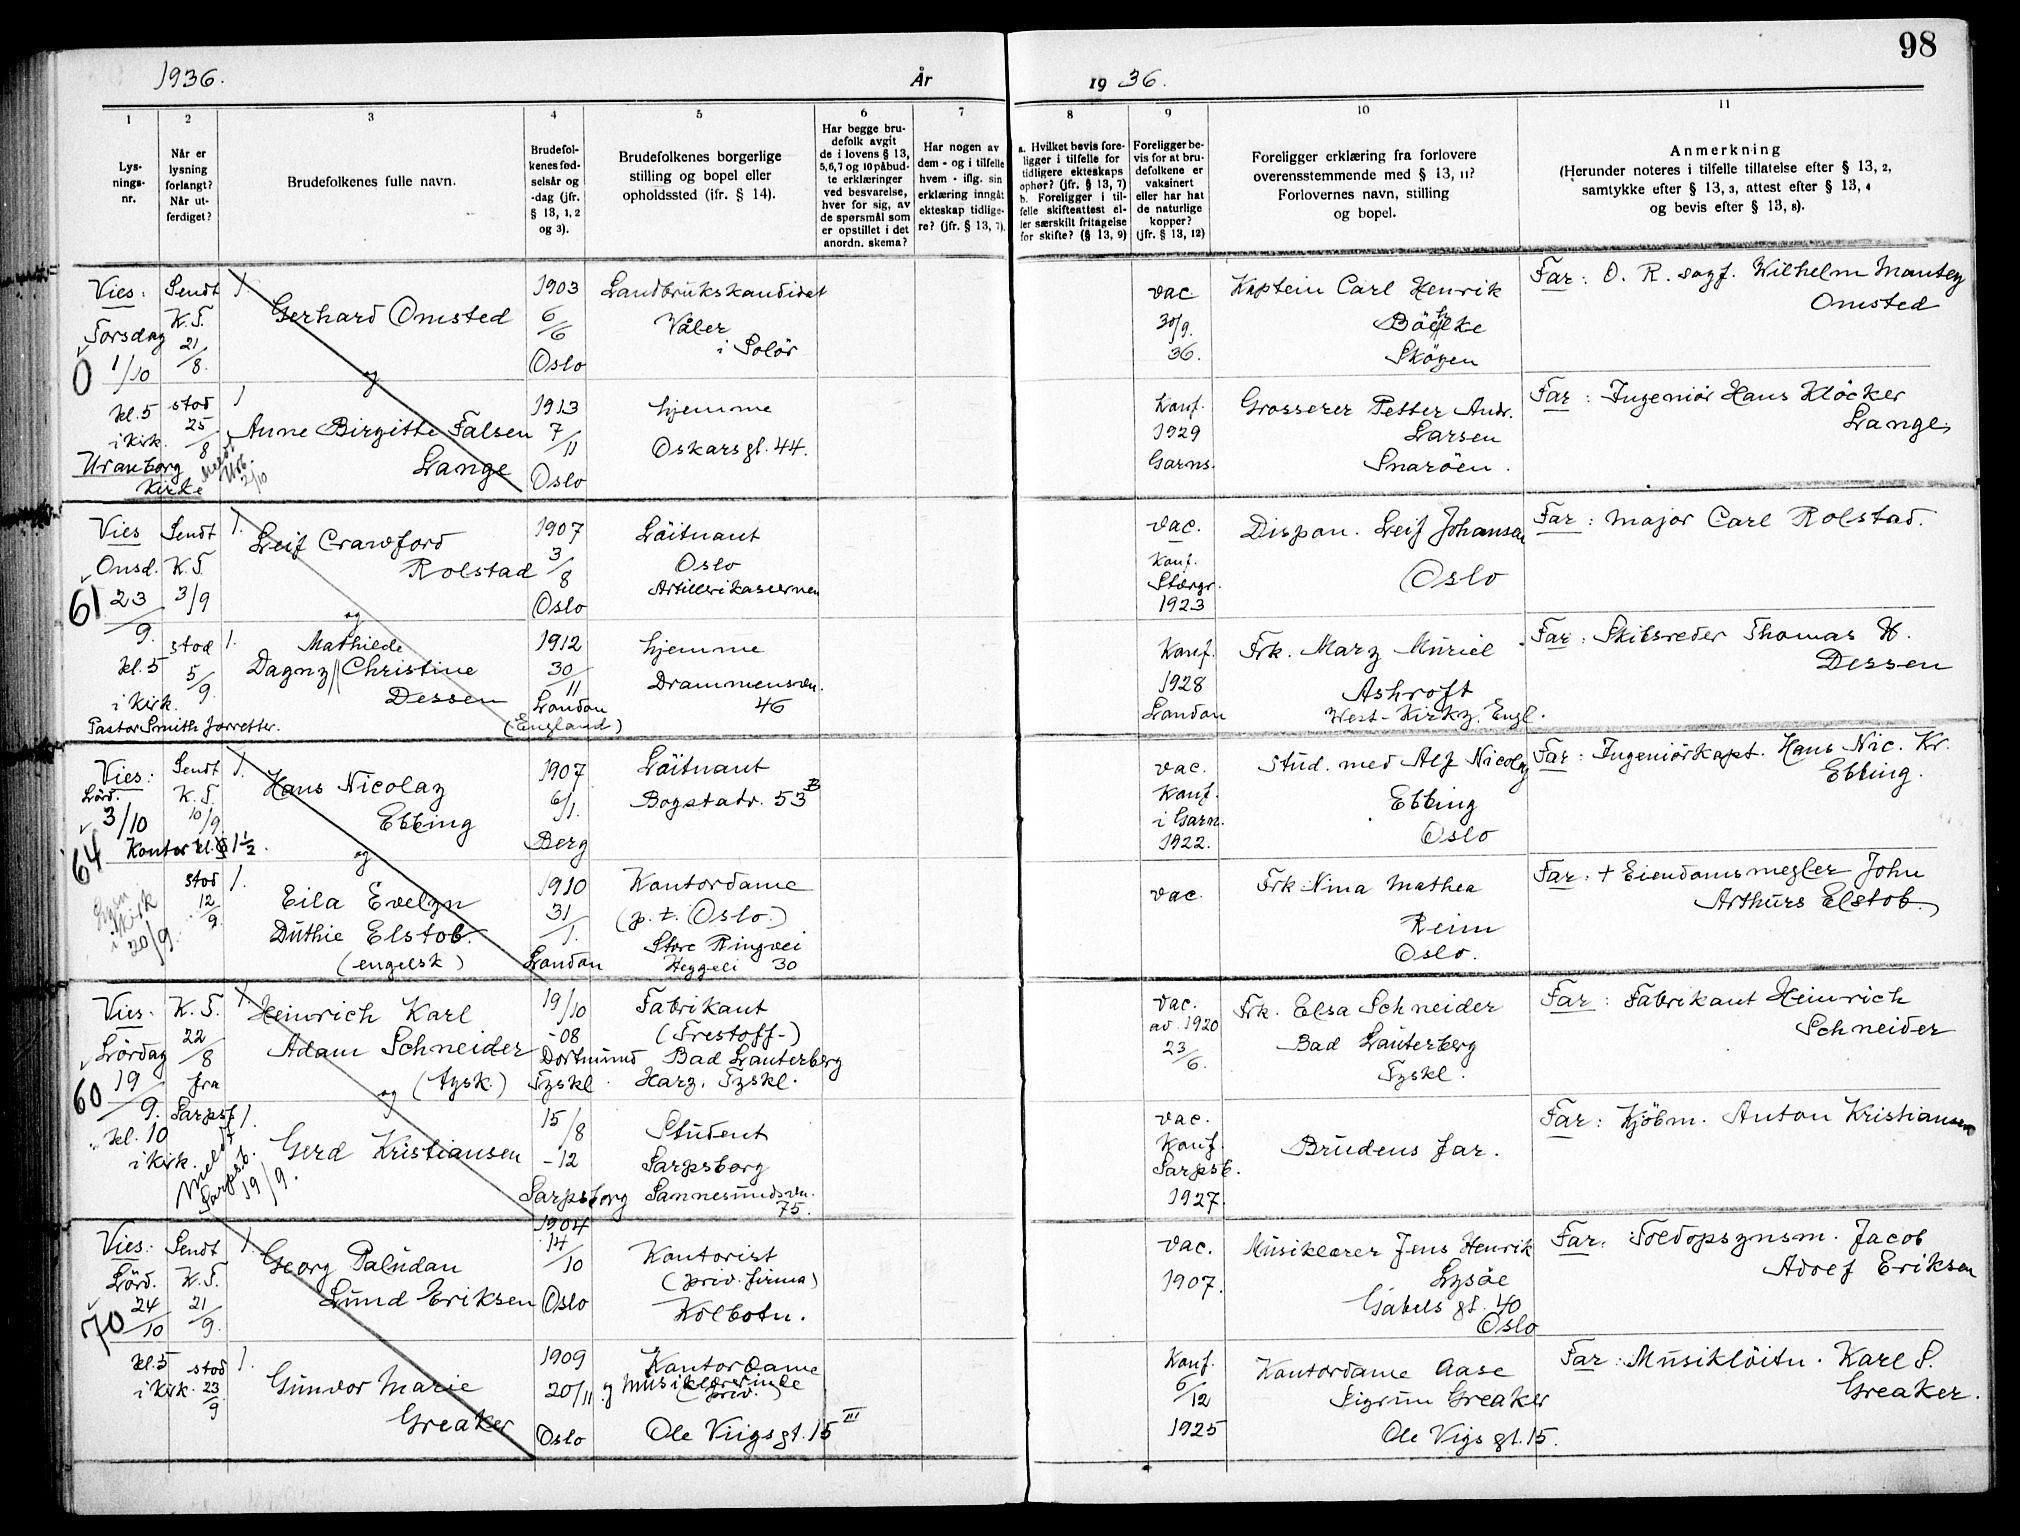 98
1936.
År
19 36.
1
2
3
4
5
6
7
8
9
10
11
Lys-
nings-
nr.
Når er
lysning
forlangt?
Når ut-
ferdiget?
Brudefolkenes fulle navn.
Brudefol-
kenes fød-
selsår og
-dag (jfr.
§ 13, 1, 2
og 3).
Brudefolkenes borgerlige
stilling og bopel eller
opholdssted (ifr. § 14).
Har begge bru-
defolk avgit
de i lovens § 13,
5,6,7 og 10 påbud-
te erklæringer
ved besvarelse,
hver for sig, av
de spørsmål som
er opstillet i det
anordn. skema?
Har nogen av
dem - og i tilfelle
hvem - iflg. sin
erklæring inngått
ekteskap tidlige-
re? (jfr. § 13, 7).
a. Hvilket bevis fore-
ligger i tilfelle for
tidligere ekteskaps
ophør? (jfr. § 13, 7)
b. Foreligger i til-
felle skifteattest el-
ler særskilt fritagelse
for skifte? (§ 13, 9)
Foreligger be-
vis for at bru-
defolkene er
vaksinert
eller har hat
de naturlige
kopper?
(jfr. § 13, 12)
Foreligger erklæring fra forlovere
overensstemmende med § 13, 11?
Forlovernes navn, stilling
og bopel.
Anmerkning
(Herunder noteres i tilfelle tillatelse efter § 13, 2,
samtykke efter § 13, 3, attest efter § 13, 4
og bevis efter § 13, 8).
Vies:
Torsdag
0
1/10
kl. 5
i Kirk.
Uranborg
Kirke
Sendt
K.T.
21/8.
stod
25/8
2/10
1.
Gerhard Omsted
og
1
Anne Birgitte Falsen
Lange
1903
6/6
Oslo
1913
7/11
Oslo
Landbrukskandidat
Våler
i Solör
hjemme
Oskarsgt. 44.
vac
30/9.
36.
Konf.
1929
Garns.
Kaptein Carl Henrik
Skögen
Grosserer Petter Andr.
Larsen
Snaröen.
Far: O. R. sagf. Wilhelm Mantey
Omsted
Far: Ingeniör Hans Klöcker
Lange,
Vies
Onsd.
61
23/9.
kl. 5
i Kirk.
Pastor Smith Jorretter.
Sendt
K.T.
3/9
stod
5/9.
1.
Leif Crawford
Rolstad
og
1.
Mathilde
Dagny // Christine
Dessen
1907
3/8
Oslo
1912
30/11
London
(England)
Löitnant
Oslo
Artillerikasernen
hjemme
Drammensvn.
46
vac.
Konf.
Störgr.
1923
Konf.
1928
London
Dispon. Leif Johansen
Oslo
Frk. Mary Muriel
Ashroft
West-Kirky. Engl.
Far: Major Carl Rolstad.
Far: Skibsreder Thomas H.
Dessen
Vies:
Lörd.
3/10
64
Kontor kl. 1½.
i Kirk
20/9.
Sendt
K.T.
10/9
stod
12/9.
1.
Hans Nicolay
Ebbing
og
1.
Eila Evelyn
Duthie Elstob.
(engelsk)
1907
6/1.
Berg
1910
31/1.
London
Löitnant
Bogstadv. 53 B
Kontordame
(p.t. Oslo.)
Store Ringvei
Heggeli 30
vac.
Konf.
i Garn.
1922.
vac.
Stud. med Alf Nicolay
Ebbing
Oslo
Frk Nina Mathea
Reim
Oslo.
Far: Ingeniörkapt. Hans Nic. Kr.
Ebbing.
Far: + Eiendomsmegler John
Arthurs Elstob.
Vies.
Lördag
60
19/9.
kl. 10
i Kirk.
K.T.
22/8
fra
Sarpsb.
Meldt
Sarpsb.
19/9.
1.
Heinrich Karl
Adam Schneider
(tysk.)
og
1.
Gerd Kristiansen
19/10
-08
Dortmund
Tyskl.
15/8
-12
Sarpsborg
Fabrikant
(Trestoff-)
Bad Lauterberg
Harz. Tyskl.
Student
Sarpsborg
Sannesundsvn.
75.
vac.
av. 1920
23/6.
vac.
Konf.
Sarpsb.
1927.
Frk. Elsa Schneider
Bad Lauterberg
Tyskl.
Brudens far.
Far: Fabrikant Heinrich
Schneider
Far: Kjöbm. Anton Kristiansen
Vies:
Lörd.
70
24/10
kl. 5
i Kirk.
Sendt
K.T.
21/9.
stod
23/9
1.
Georg Paludan
Lund Eriksen
1.
Gunvor Marie
Greaker
1904
14/10
Oslo
1909
20/11
Oslo
Kontorist
(priv. firma)
Kolbotn.
Kontordame
og Musiklærerinde
(priv.)
Ole Viigsgt. 15 III
vac.
1907.
Konf.
6/12
1925
Musiklærer Jens Henrik
Lysöe
Gabels gt. 40
Oslo
Kontordame Aase
Sigrun Greaker
Ole Vigs gt. 15.
Far. Toldopsynsm. Jacob
Adolf Eriksen
Far: Musiklöitn. Karl S.
Greaker.